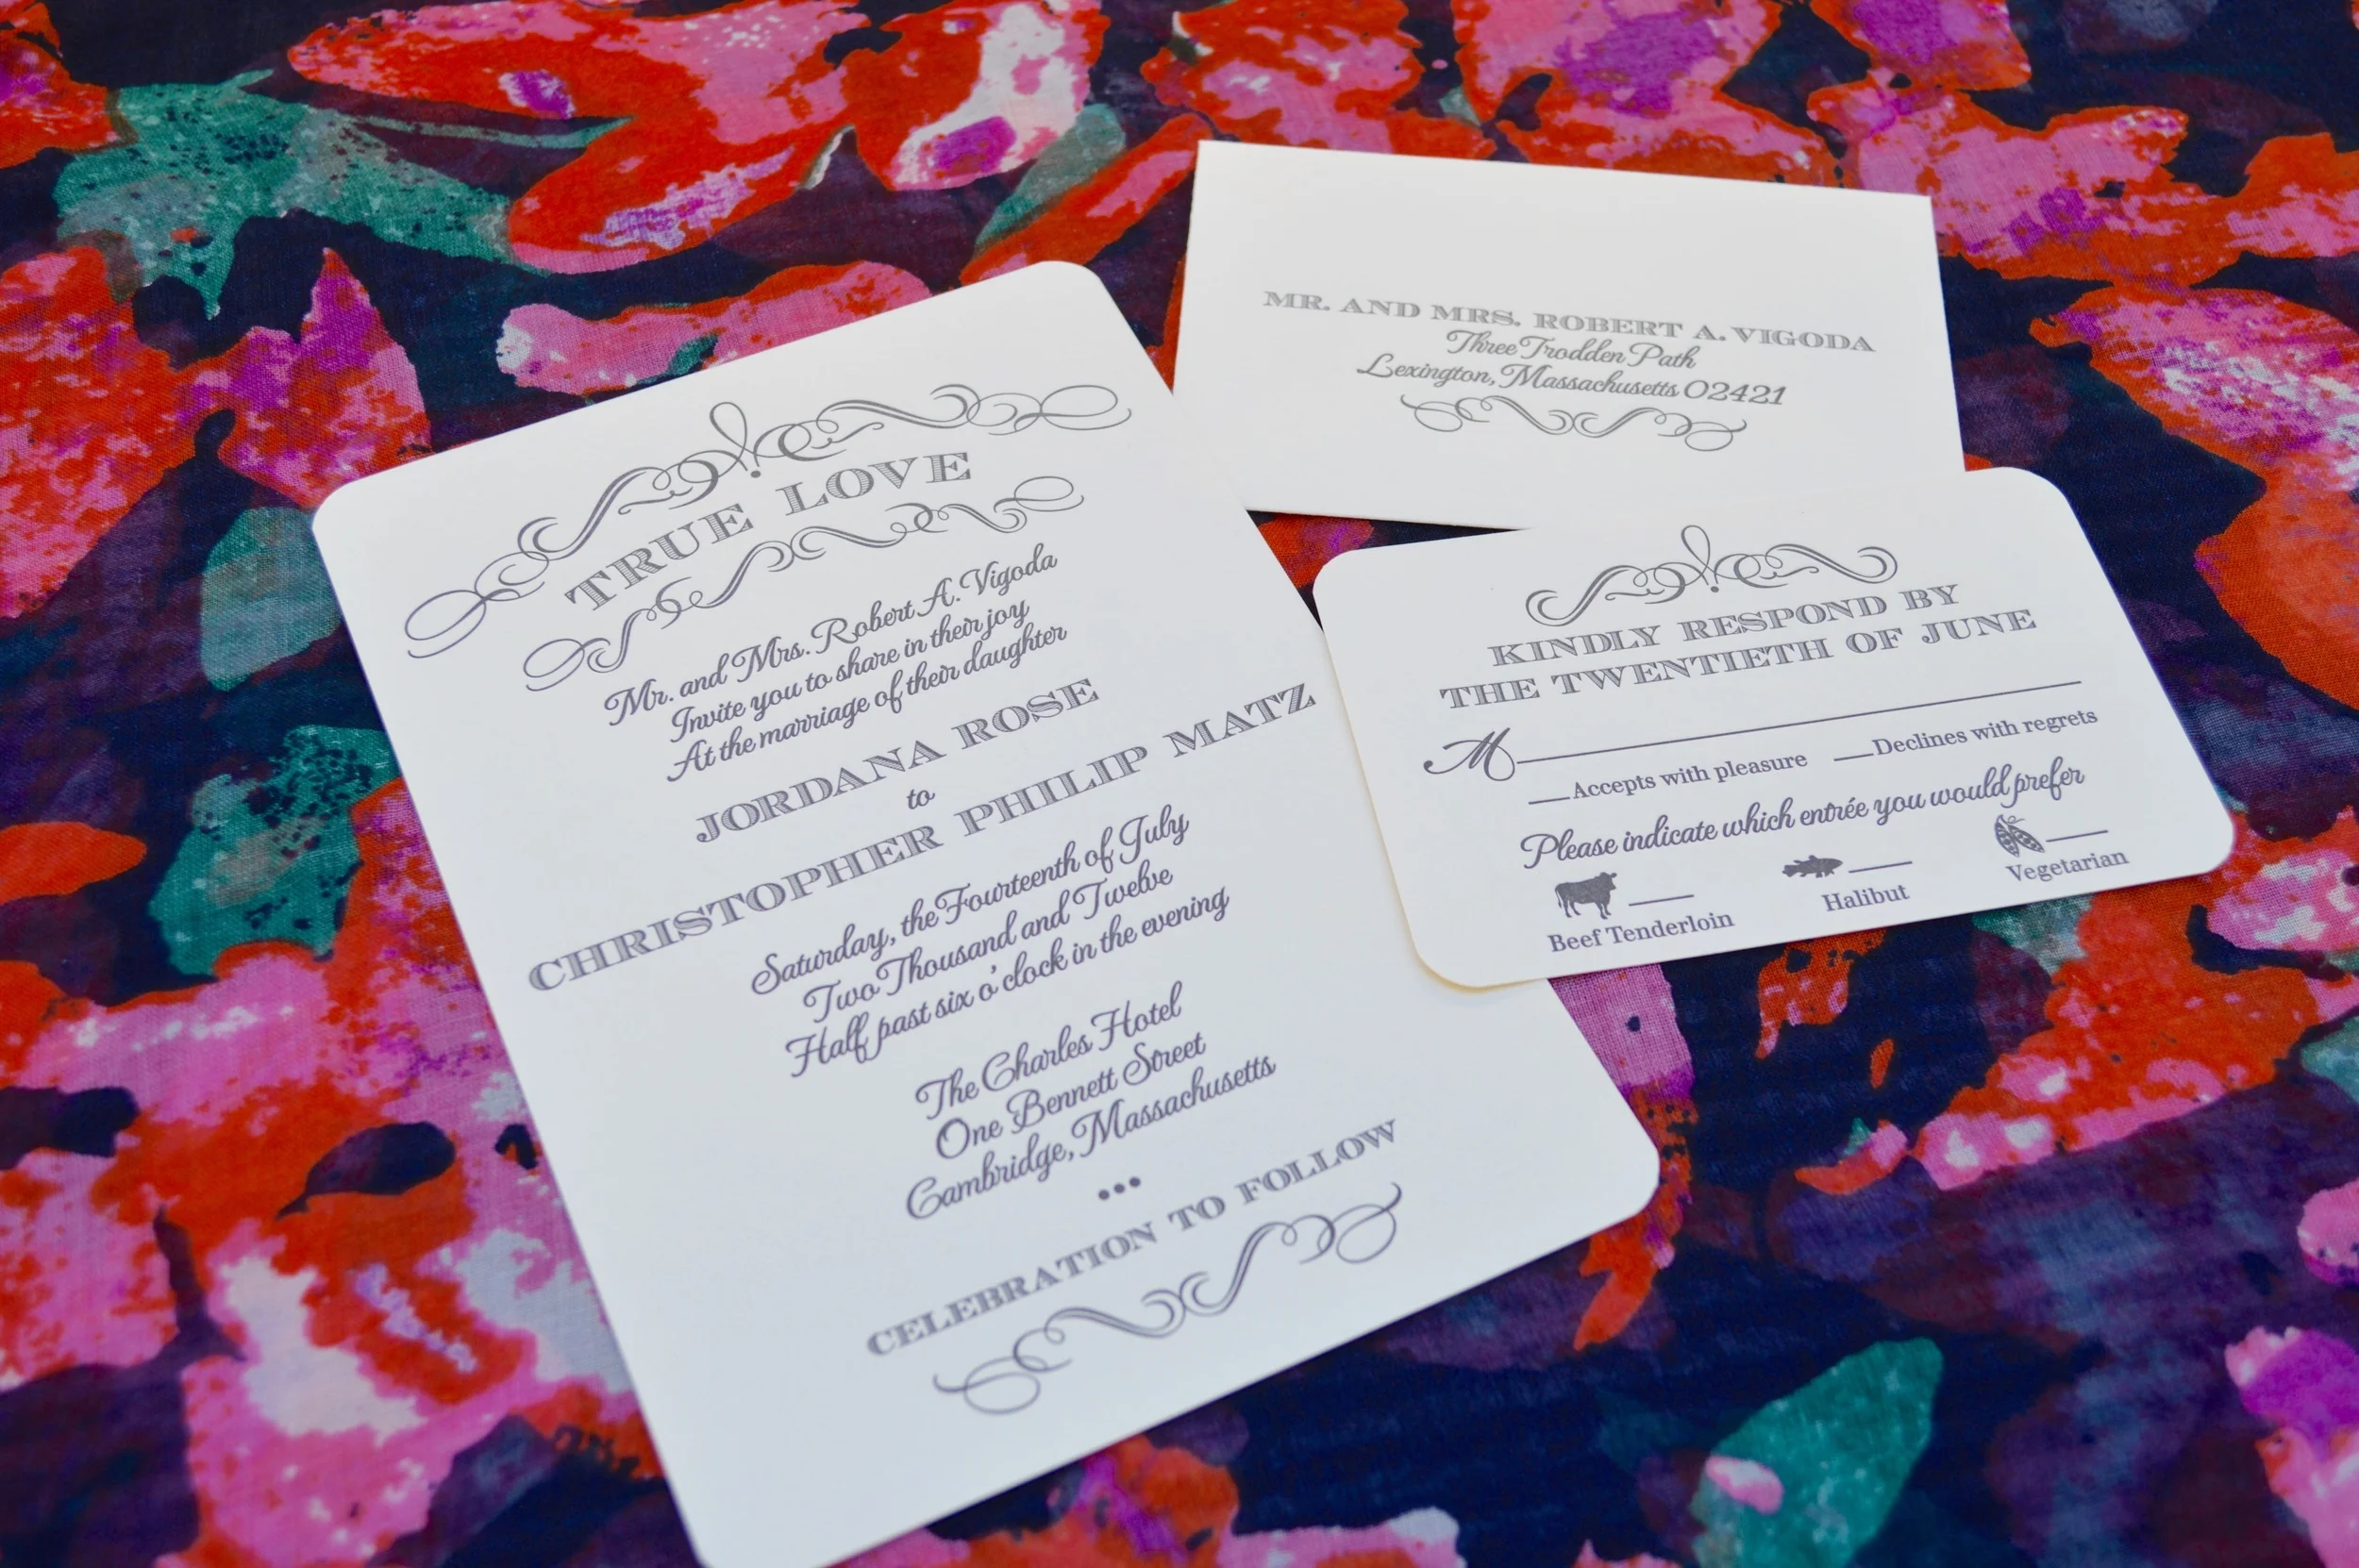 TRUE LOVE
Mr. and Mrs. Robert A. Vigoda
Invite you to share in their joy
At the marriage of their daughter
JORDANA ROSE
to
CHRISTOPHER PHILIP MATZ
Saturday, the Fourteenth of July
Two Thousand and Twelve
Half past six o'clock in the evening
The Charles Hotel
One Bennett Street
Cambridge, Massachusetts
•••
CELEBRATION TO FOLLOW
MR. AND MRS. ROBERT A. VIGODA
Three Trodden Path
Lexington, Massachusetts 02421
KINDLY RESPOND BY
THE TWENTIETH OF JUNE
M
Accepts with pleasure Declines with regrets
Please indicate which entrée you would prefer
Beef Tenderloin Halibut Vegetarian